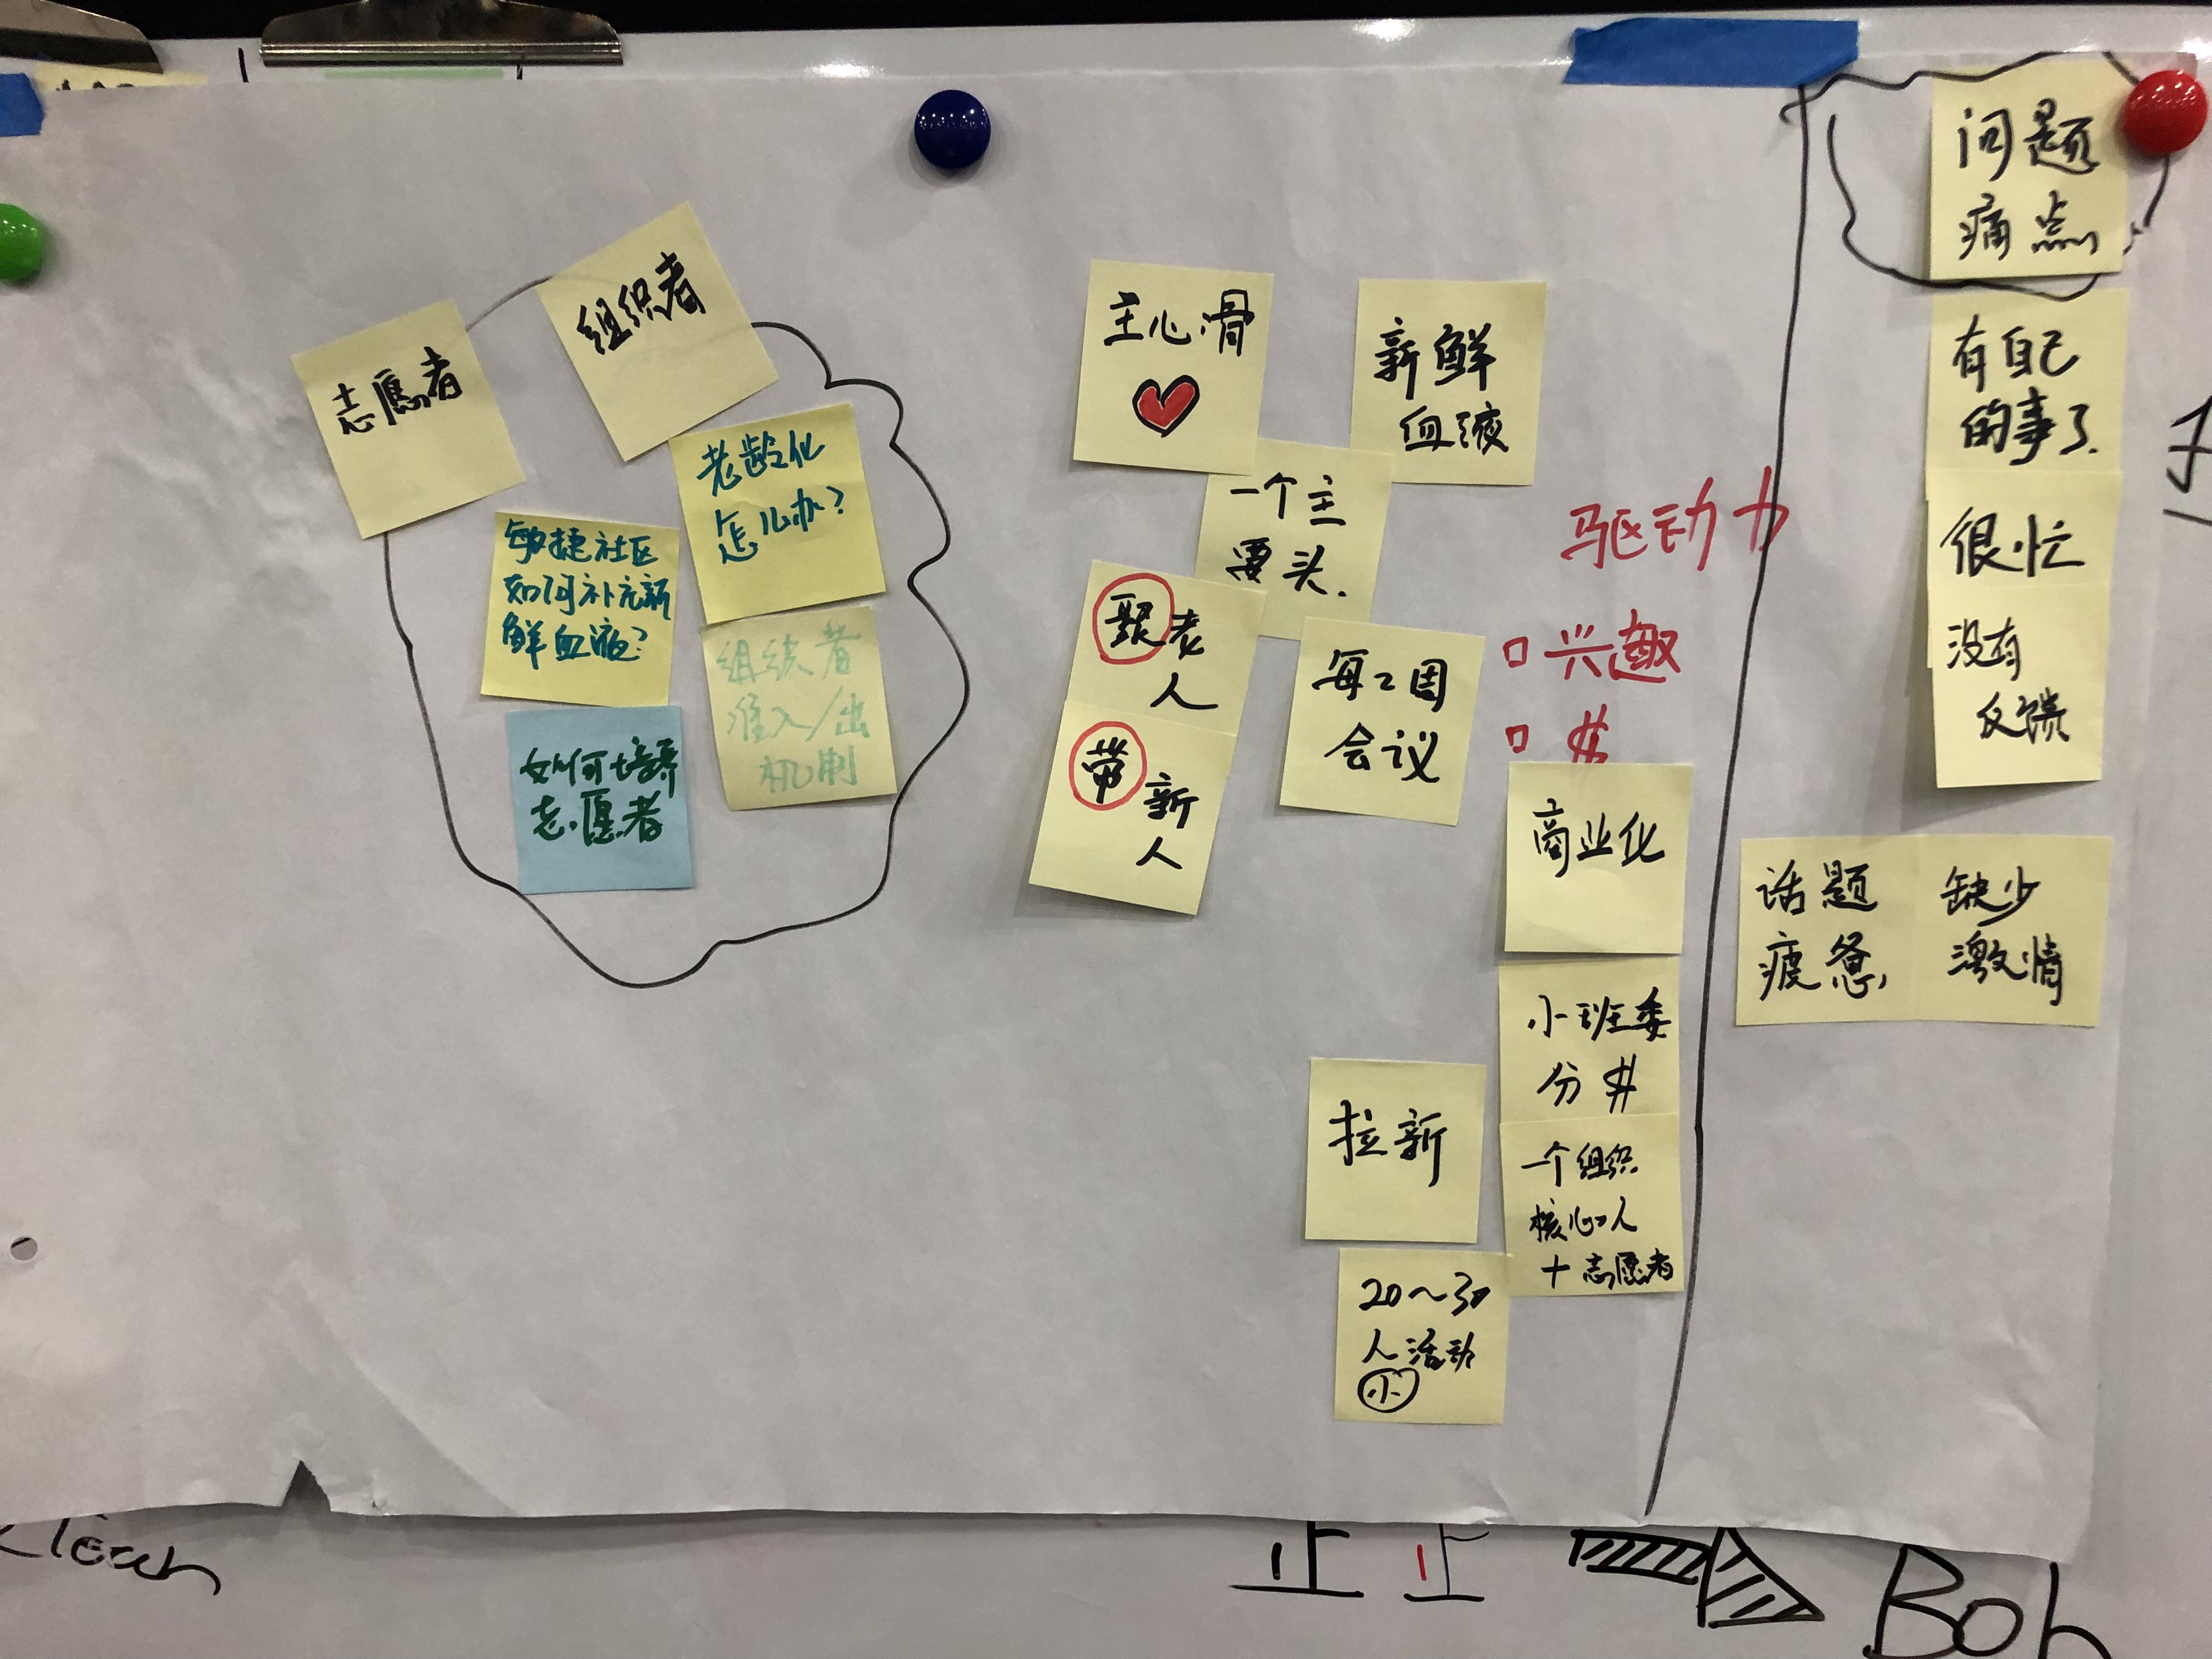 志愿者
组织者
老龄化
怎么办?
敏捷社区
如何补充新
鲜血液?
组织者
准入/出
机制
如何培养
志愿者
主心骨
新鲜
血液
一个主
要头.
聚老
人
带新
人
每2周
会议
驱动力
兴趣
$
商业化
小班委
分$
一个组织
核心人
+志愿者
拉新
20~30
人活动
小
问题
痛点
有自己
的事了.
很忙
没有
反馈
话题
疲惫
缺少
激情
Bob